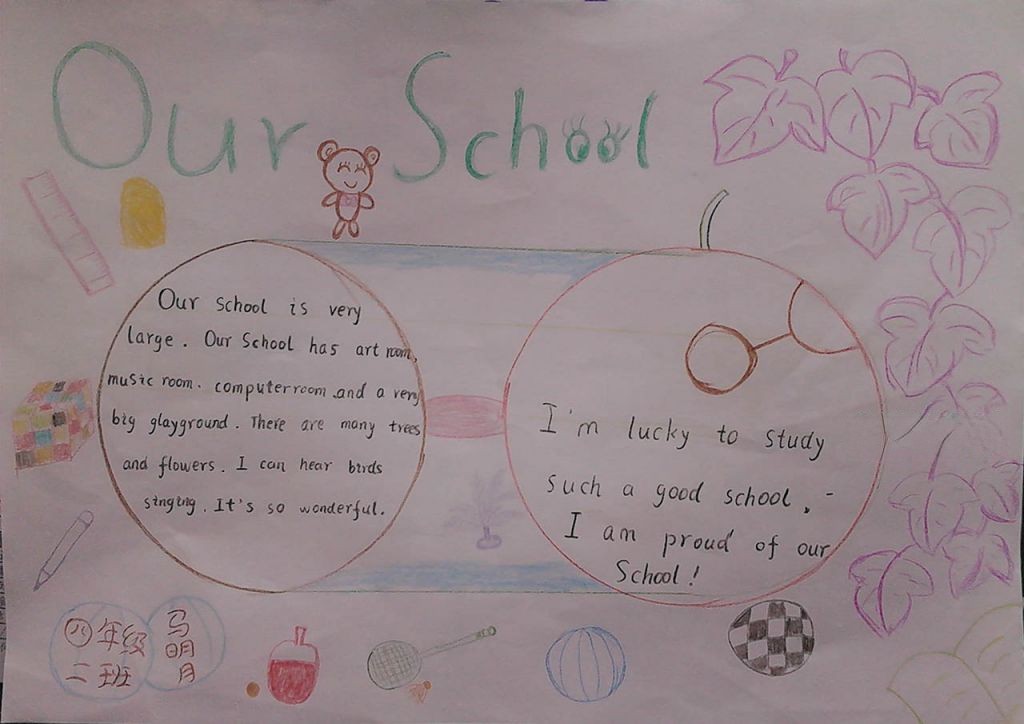 Our School
Our school is very
large. Our School has art room,
music room. computer room and a very
big glayground. There are many trees
and flowers. I can hear birds
singing. It's so wonderful.
I'm lucky to study
such a good school. -
I am proud of our
School!
四年级
二班
马明月